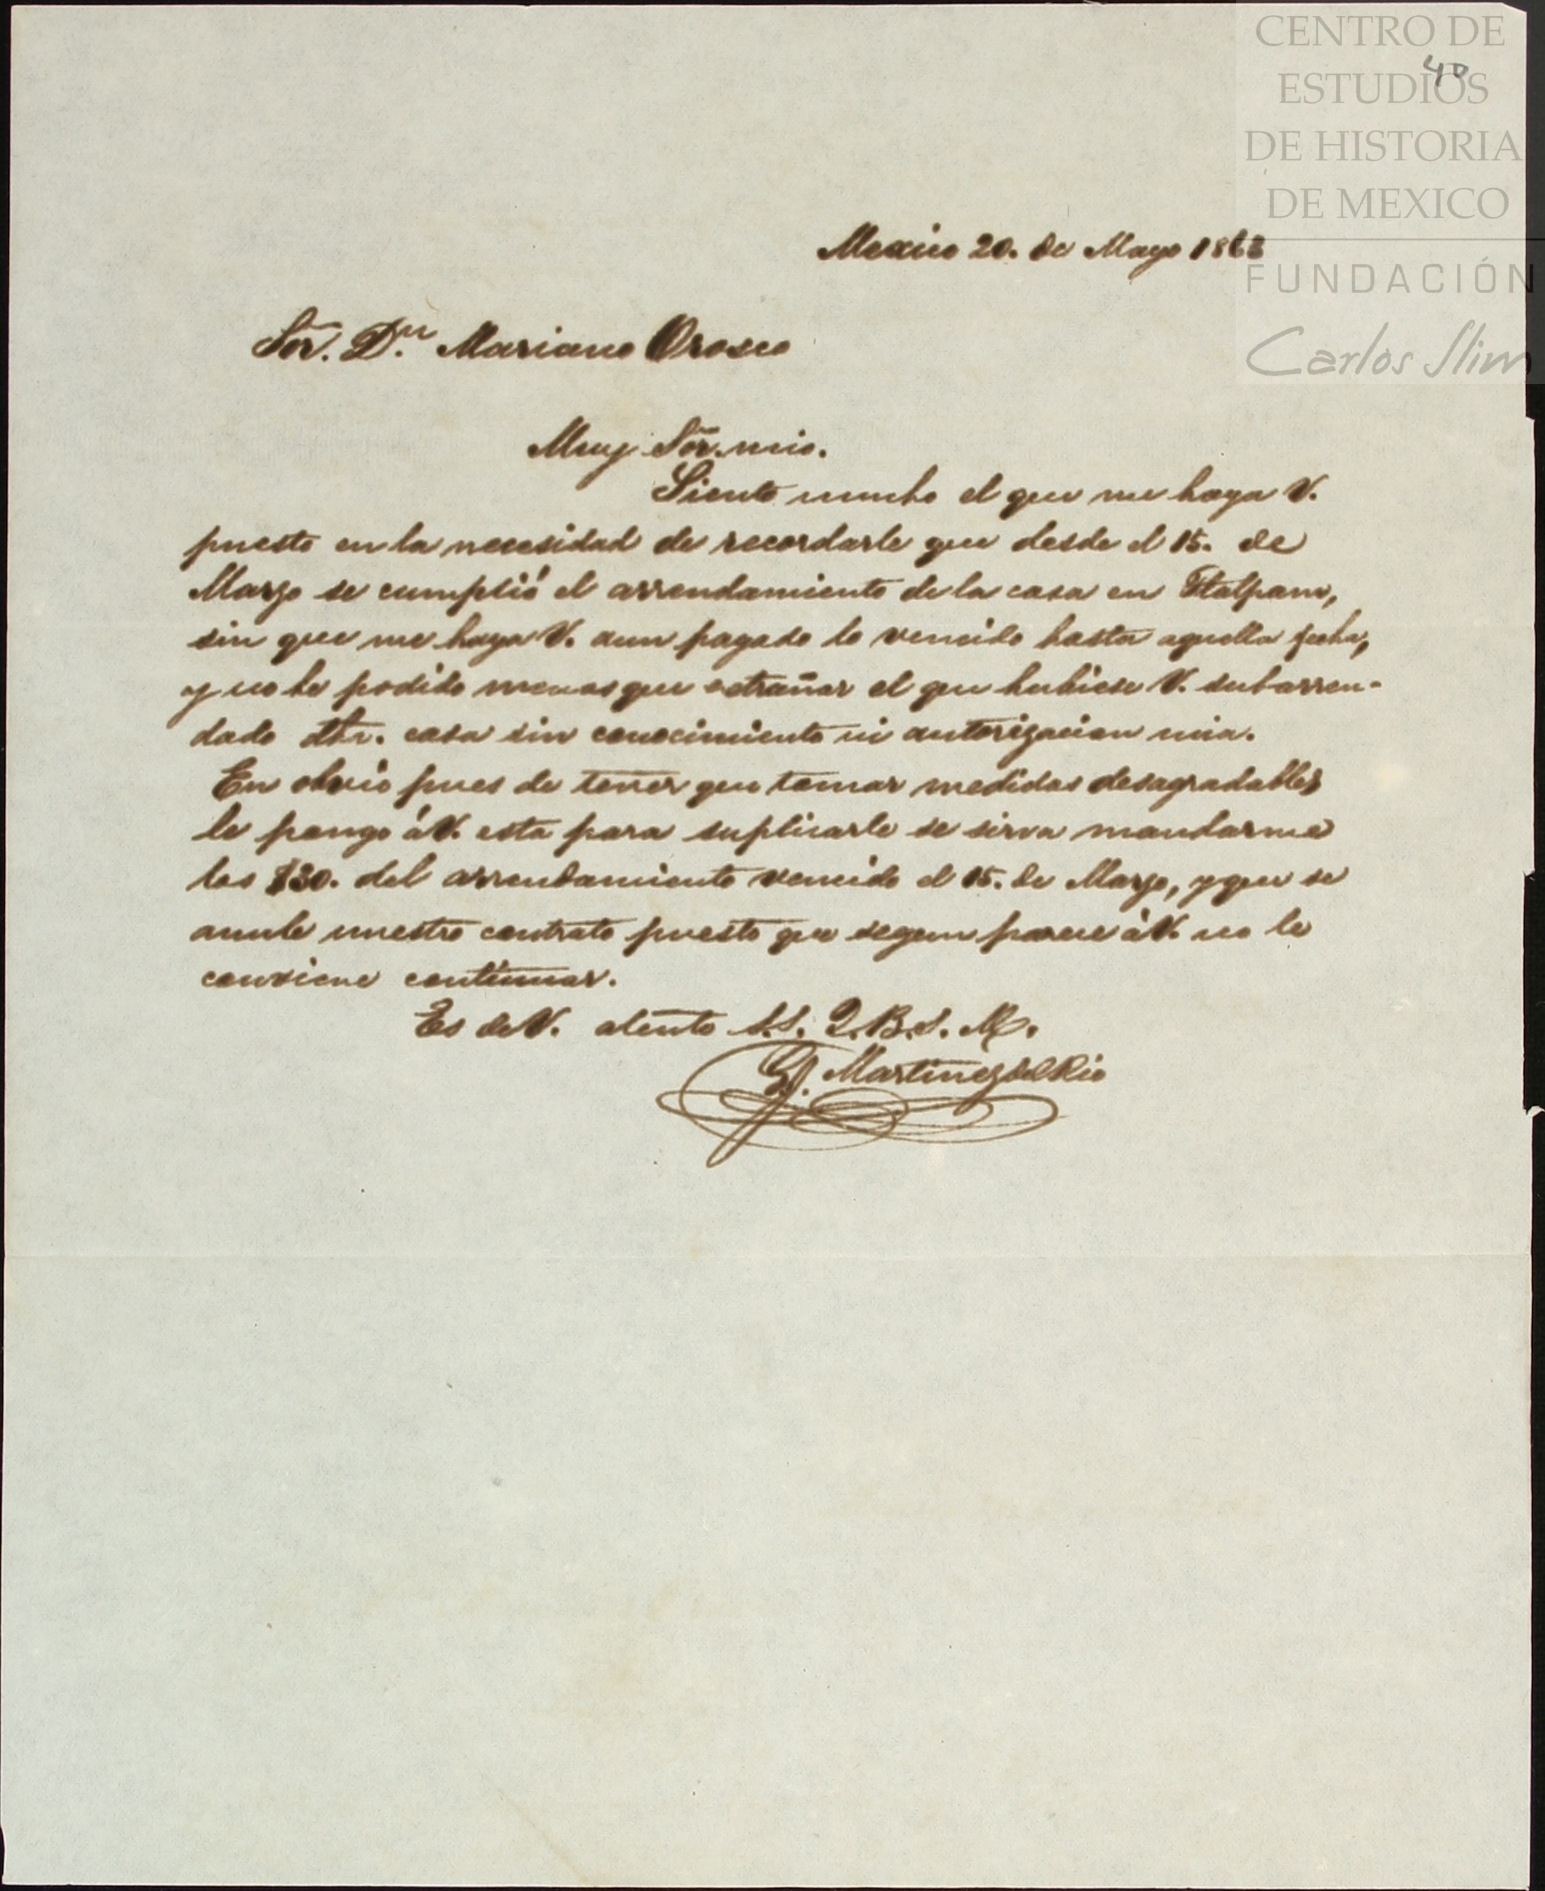 CENTRO DE
ESTUDIOS
DE HISTORIA
DE MEXICO
FUNDACIÓN
Carlos Slim
40
Mexico 20. de Mayo 1863
Sõr. D.n Mariano Orosco
Muy Sõr. mio.
Siento mucho el que me haya V.
puesto en la necesidad de recordarle que desde el 15. de
Marzo se cumplió el arrendamiento de la casa en Tlalpam,
sin que me haya V. aun pagado lo vencido hasta aquella fecha,
y no he podido menos que estrañar el que hubiese V. subarren-
dado dha. casa sin conocimiento ni autorizacion mia.
En obvio pues de tener que tomar medidas desagradables
le pongo á V. esta para suplicarle se sirva mandarme
los $30. del arrendamiento vencido el 15. de Marzo, y que se
anule nuestro contrato puesto que segun parece á V. no le
conviene continuar.
Es de V. atento S.S. Q.B.S.M.
Martinez del Rio